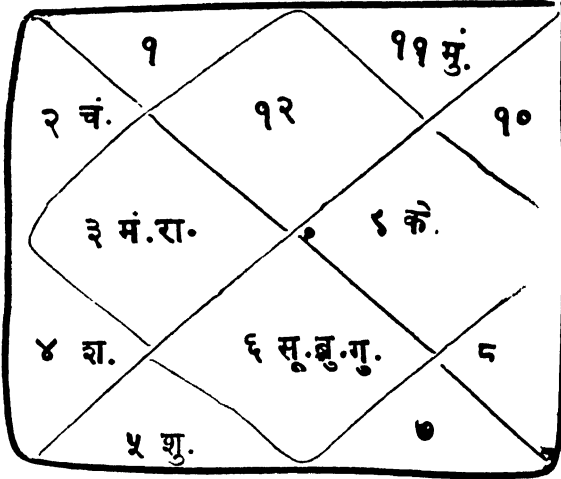 १ ११ मुं.
२ चं. १२ १०
३ मं.रा. ९ के.
४ श. ६ सू.बु.गु. ८
५ शु. ७